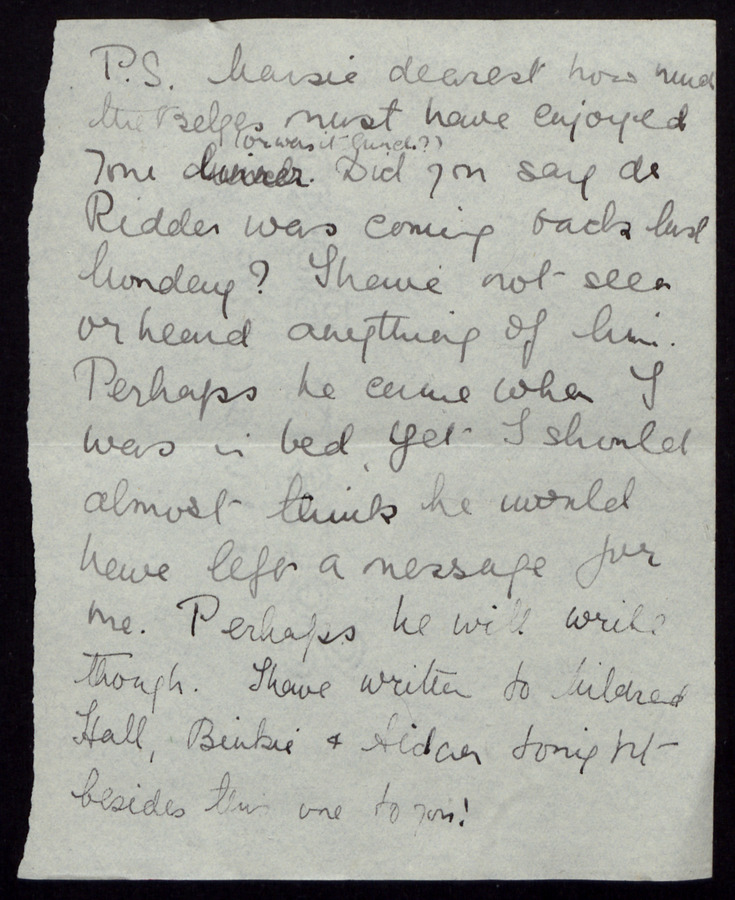 P.S. Maisie dearest how much
the Belges must have enjoyed
(or was it lunch??)
your dinner. Did you say de
Ridder was coming back last
Monday? I have not seen
or heard anything of him.
Perhaps he came when I
was in bed, yet I should
almost think he would
have left a message for
me. Perhaps he will write
though. I have written to Mildred
Hall, Binkie & Aidan tonight
besides this one to you!